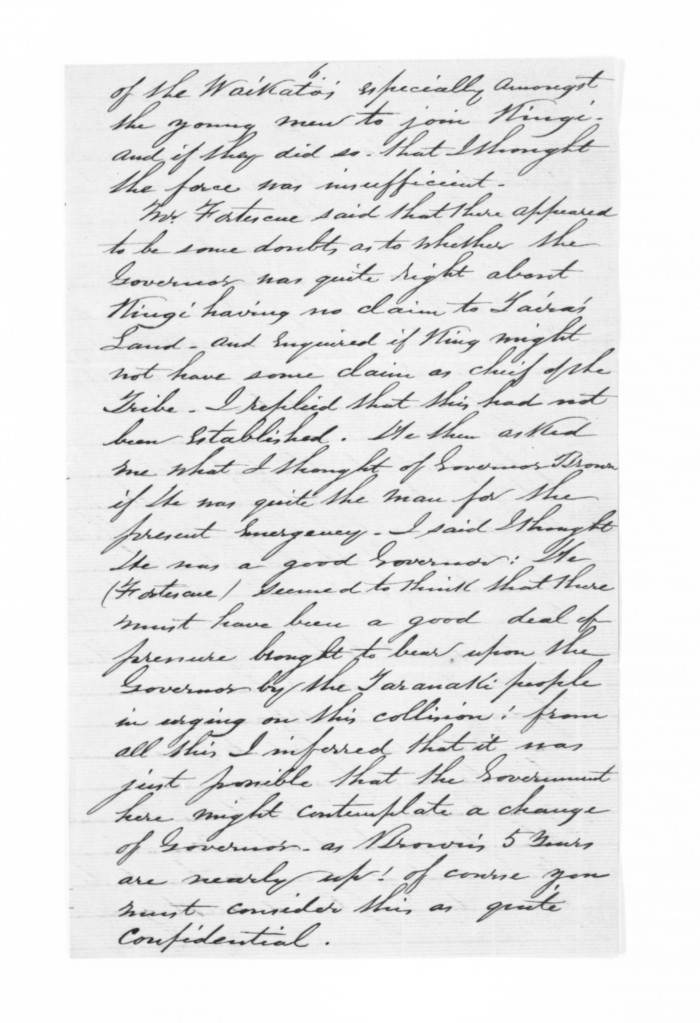 of the Waikato's especially amongst
the young men to join Kingi -
and if they did so - that I thought
the force was insufficient -
Mr. Fortescue said that there appeared
to be some doubts as to whether the
Governor was quite right about
Kingi having no claim to Taira's
Land - and Enquired if King might
not have some claim as chief of the
Tribe - I replied that this had not
been established. He then asked
me what I thought of Governor Brown
if He was quite the man for the
present Emergency - I said I thought
He was a good Governor: He
(Fortescue) seemed to think that there
must have been a good deal of
pressure brought to bear upon the
Governor by the Taranaki people
in urging on this collision! from
all this I inferred that it was
just possible that the Government
here might contemplate a change
of Governor - as Brown's 5 Years
are nearly up! of course you
must consider this as quite
Confidential.